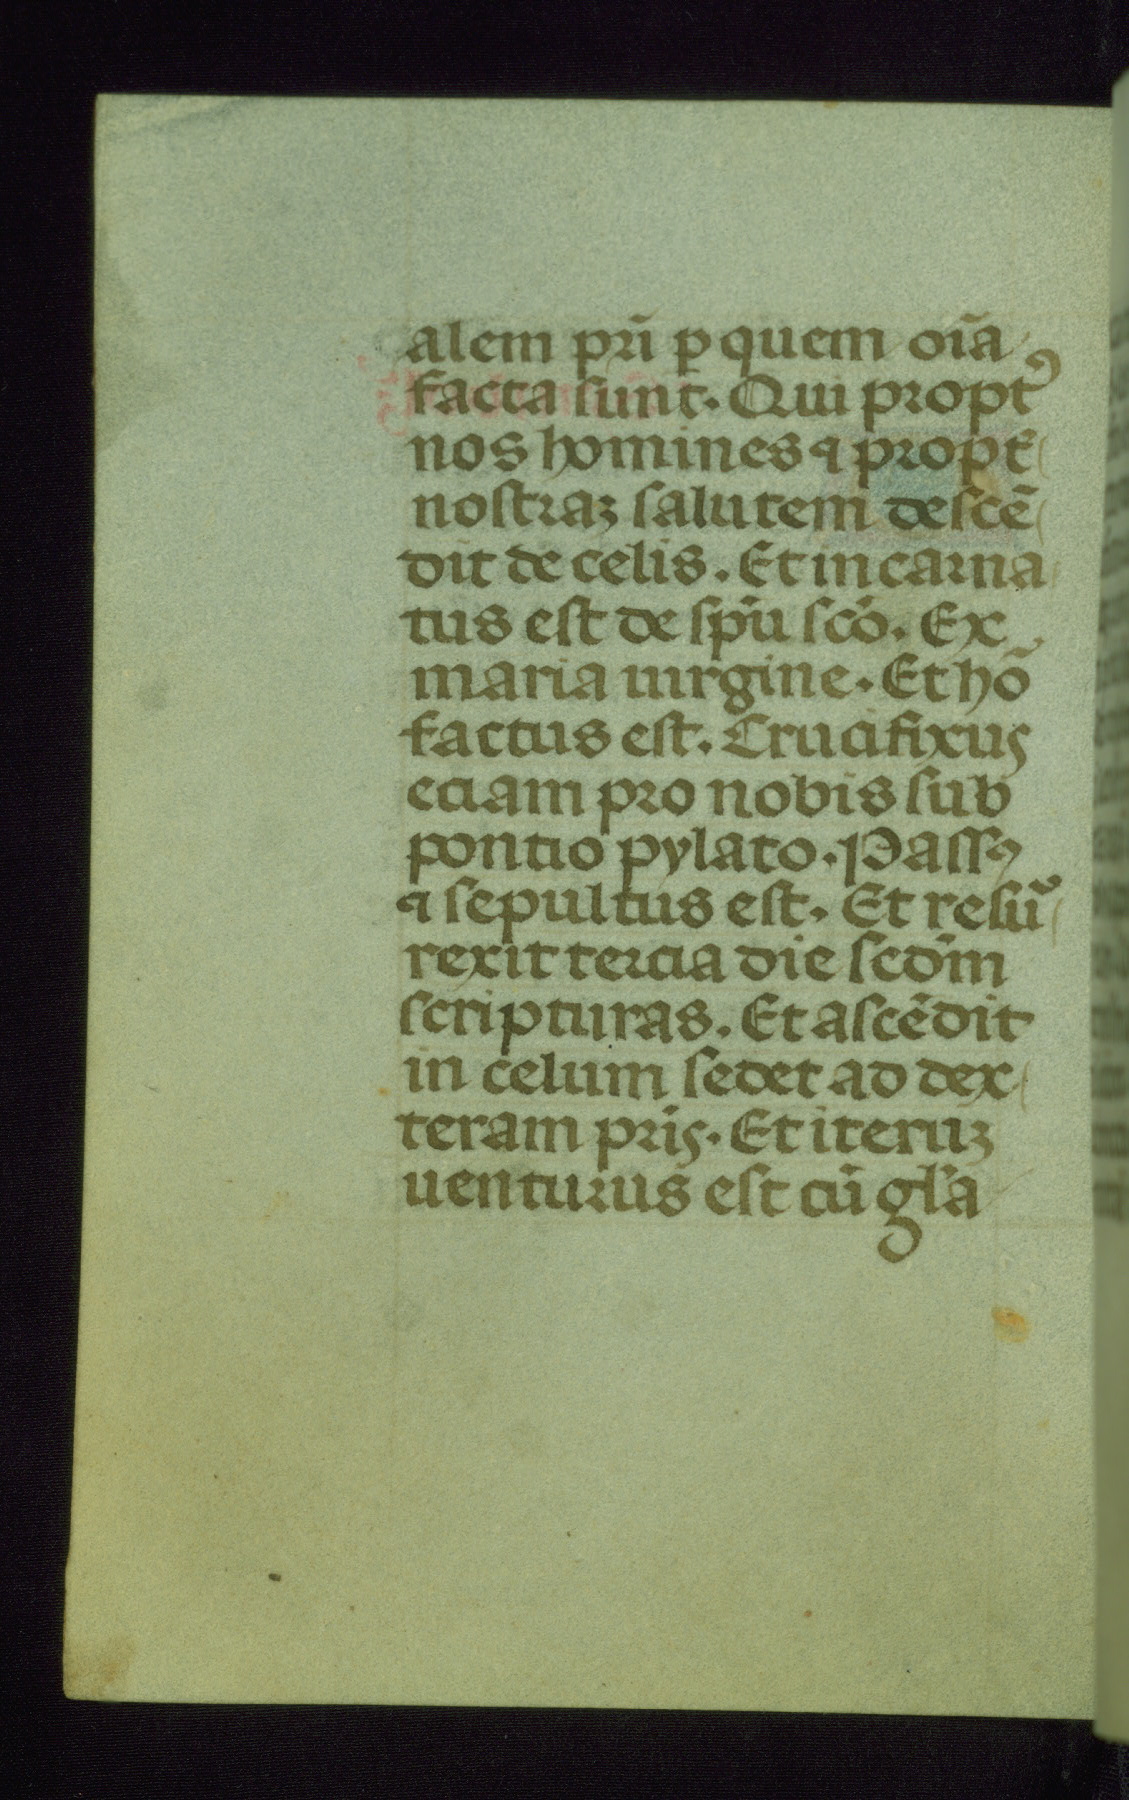 alem pr̄i ꝑ quem oīa
facta sunt. Qui propt᾽
nos homines ⁊ propt̄
nostraꝫ salutem descē
dit de celis. Et incarna
tus est de sp̄u sc̄o. Ex
maria uirgine. Et hō
factus est. Crucifixus
eciam pro nobis sub
pontio pylato. Passꝰ
⁊ sepultus est. Et resū
rexit tercia die scd̄m
scripturas. Et ascēdit
in celum sedet ad dex
teram pr̄is. Et iteruꝫ
uenturus est cū gl̄a